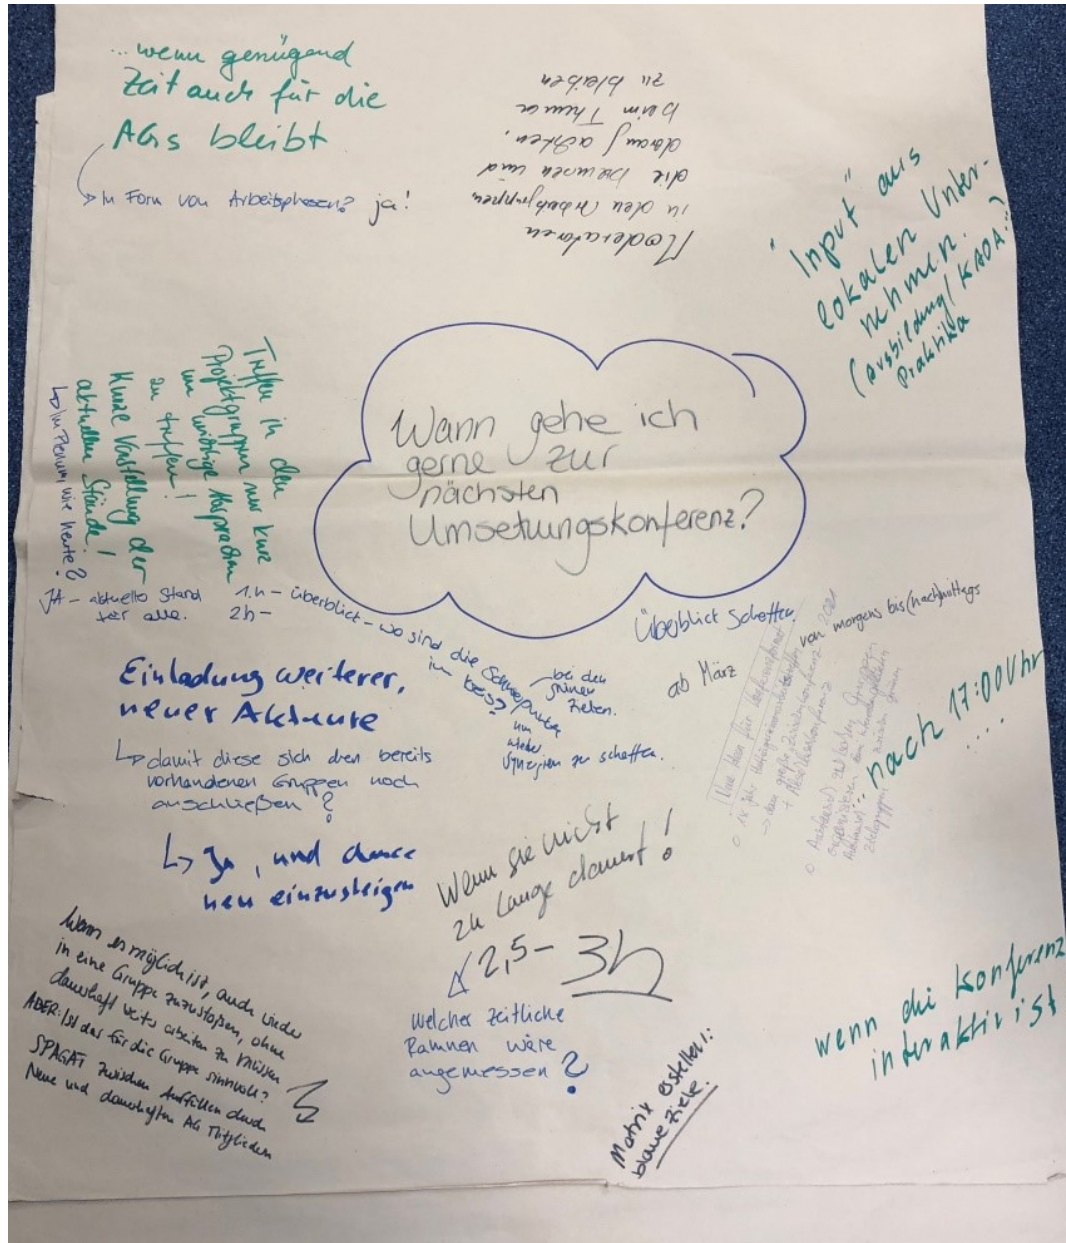 ...wenn genügend
Zeit auch für die
AGs bleibt
In Form von Arbeitsphasen? ja!
Moderatoren
in den Arbeitsgruppen
die bremsen und
darauf achten,
beim Thema
zu bleiben
"Input" aus
lokalen Unter-
nehmen.
(Ausbildung/KAOA?
Praktika
Treffen in den
Projektgruppen nur kurz
um wichtige Absprachen
zu treffen!
Kurze Vorstellung der
aktuellen Stände!
Im Plenum, wie heute?
JA - aktuelle Stand
für alle.
Wann gehe ich
gerne zur
nächsten
Umsetzungskonferenz?
1.h - überblick - wo sind die Schwerpunkte
2h -
im
bei den
grünen
Zielen.
um
wieder
Synergien zu schaffen.
Überblick schaffen
ab März
von morgens bis (nach)mittags
1x Jahr
nach 17:00 Uhr
....
Einladung weiterer,
neuer Akteure
damit diese sich den bereits
vorhandenen Gruppen noch
anschließen?
Ja, und chance
neu einzusteigen
Wenn sie nicht
zu lange dauert!
2,5 - 3h
Welcher zeitliche
Rahmen wäre
angemessen?
Wenn es möglich ist, auch wieder
in eine Gruppe zuzustoßen, ohne
dauerhaft weiter arbeiten zu müssen
ABER: Ist das für die Gruppe sinnvoll?
SPAGAT zwischen Auffüllen durch
Neue und dauerhaften AG Mitgliedern
Matrix erstellen!:
blaue Ziele.
wenn die Konferenz
interaktiv ist